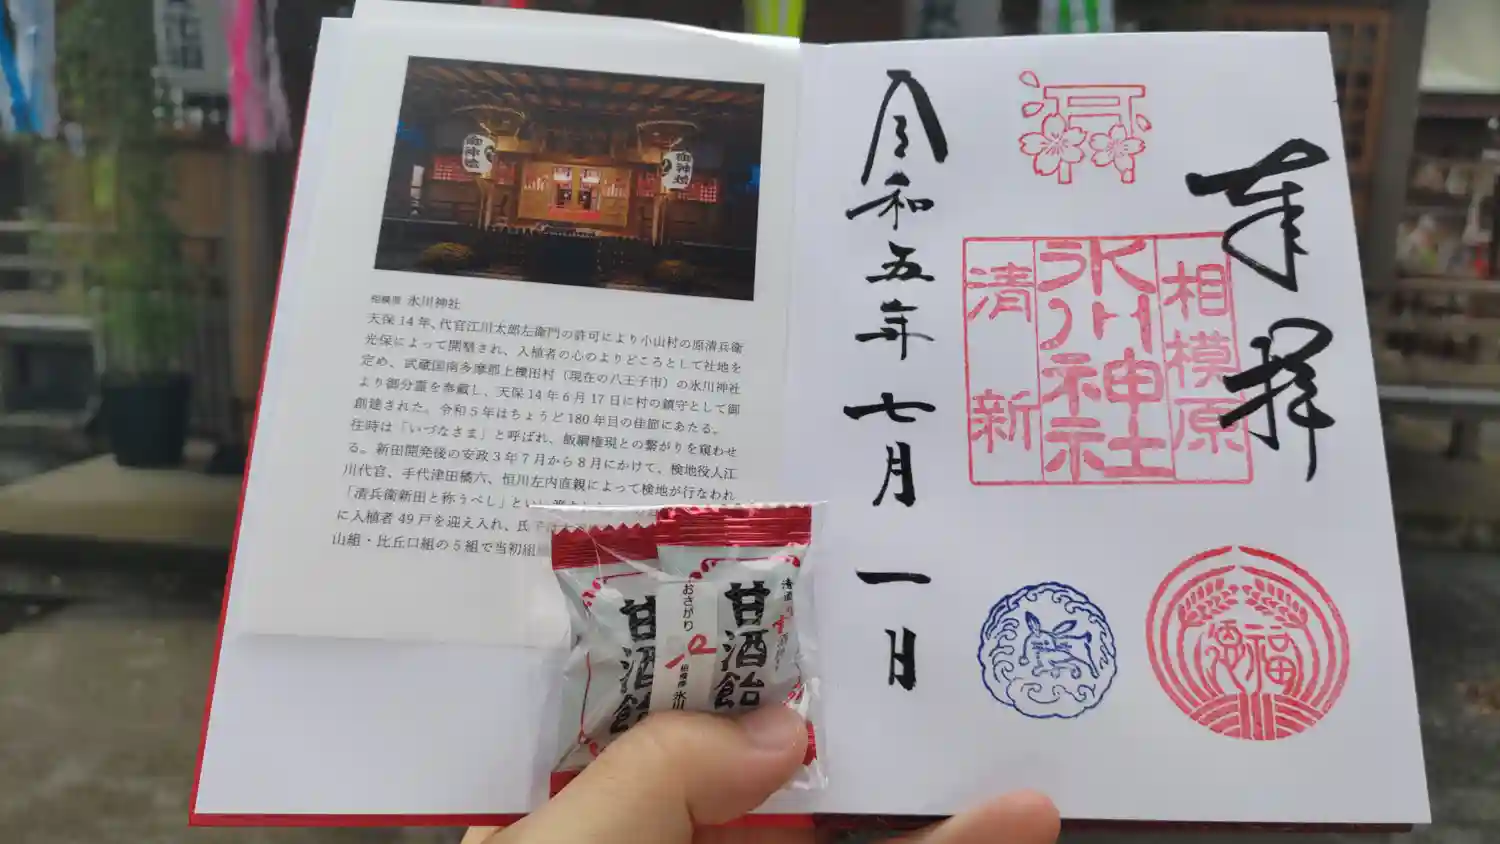 相模原 氷川神社
天保14年、代官江川太郎左衛門の許可により小山村の原清兵衛
光保によって開墾され、入植者の心のよりどころとして社地を
定め、武蔵国南多摩郡上椚田村(現在の八王子市)の氷川神社
より御分霊を奉戴し、天保14年6月17日に村の鎮守として御
創建された。令和5年はちょうど180年目の佳節にあたる。
往時は「いづなさま」と呼ばれ、飯綱権現との繋がりを窺わせ
る。新田開発後の安政3年7月から8月にかけて、検地役人江
川代官、手代津田橘六、恒川左内直親によって検地が行なわれ
「清兵衛新田と称うべし」とい
に入植者49戸を迎え入れ、氏子は
山組・比丘口組の5組で当初組
甘酒飴
おさがり
相模原 氷川
甘酒飴
奉拝
相模原
氷川神社
清新
福
令和五年七月一日